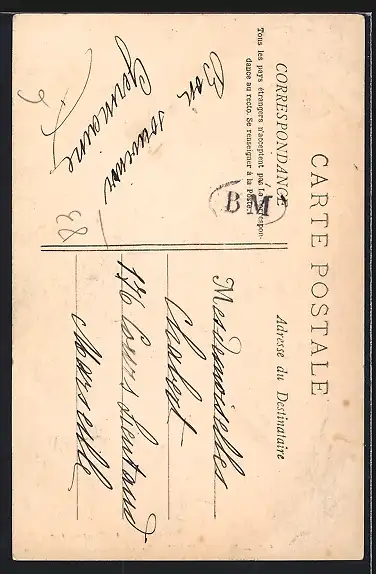 CARTE POSTALE
CORRESPONDANCE
Tous les pays étrangers n'acceptent pas la correspon-
dance au recto. Se renseigner à la Poste.
Adresse du Destinataire
BM
Bon
souvenir
Germaine
38
Mesdemoiselles
Chabert
176 Cours Lieutaud
Marseille